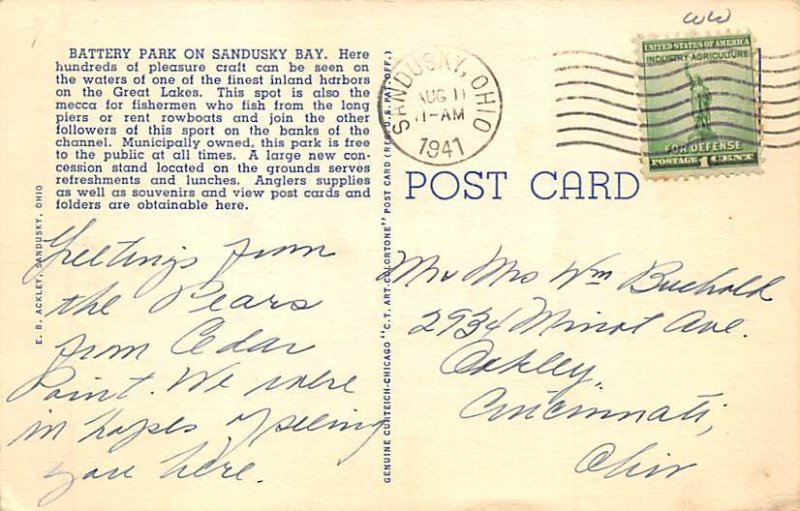 WW
BATTERY PARK ON SANDUSKY BAY. Here
hundreds of pleasure craft can be seen on
the waters of one of the finest inland harbors
on the Great Lakes. This spot is also the
mecca for fishermen who fish from the long
piers or rent rowboats and join the other
followers of this sport on the banks of the
channel. Municipally owned, this park is free
to the public at all times. A large new con-
cession stand located on the grounds serves
refreshments and lunches. Anglers supplies
as well as souvenirs and view post cards and
folders are obtainable here.
E. B. ACKLEY, SANDUSKY, OHIO
Greetings from
the Pears
from Cedar
Point. We were
in hopes of seeing
you here.
GENUINE CURTEICH-CHICAGO "C.T. ART-COLORTONE" POST CARD (REG. U.S. PAT. OFF.)
SANDUSKY, OHIO
AUG 11
11-AM
1941
UNITED STATES OF AMERICA
INDUSTRY-AGRICULTURE
FOR DEFENSE
POSTAGE 1 CENT
POST CARD
Mr Mrs Wm Buchold
2934 Minot Ave.
Oakley,
Cincinnati,
Ohio